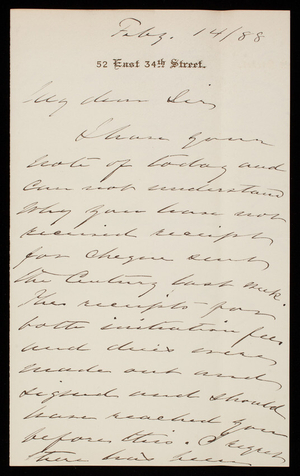 Feby. 14/88
52 East 34th Street.
My dear Sir,
I have your
note of today and
can not understand
why you have not
received receipts
for cheque sent
the Century last week.
The receipts for
both initiation fee
and dues were
made out and
signed and should
have reached you
before this. I regret
there has been